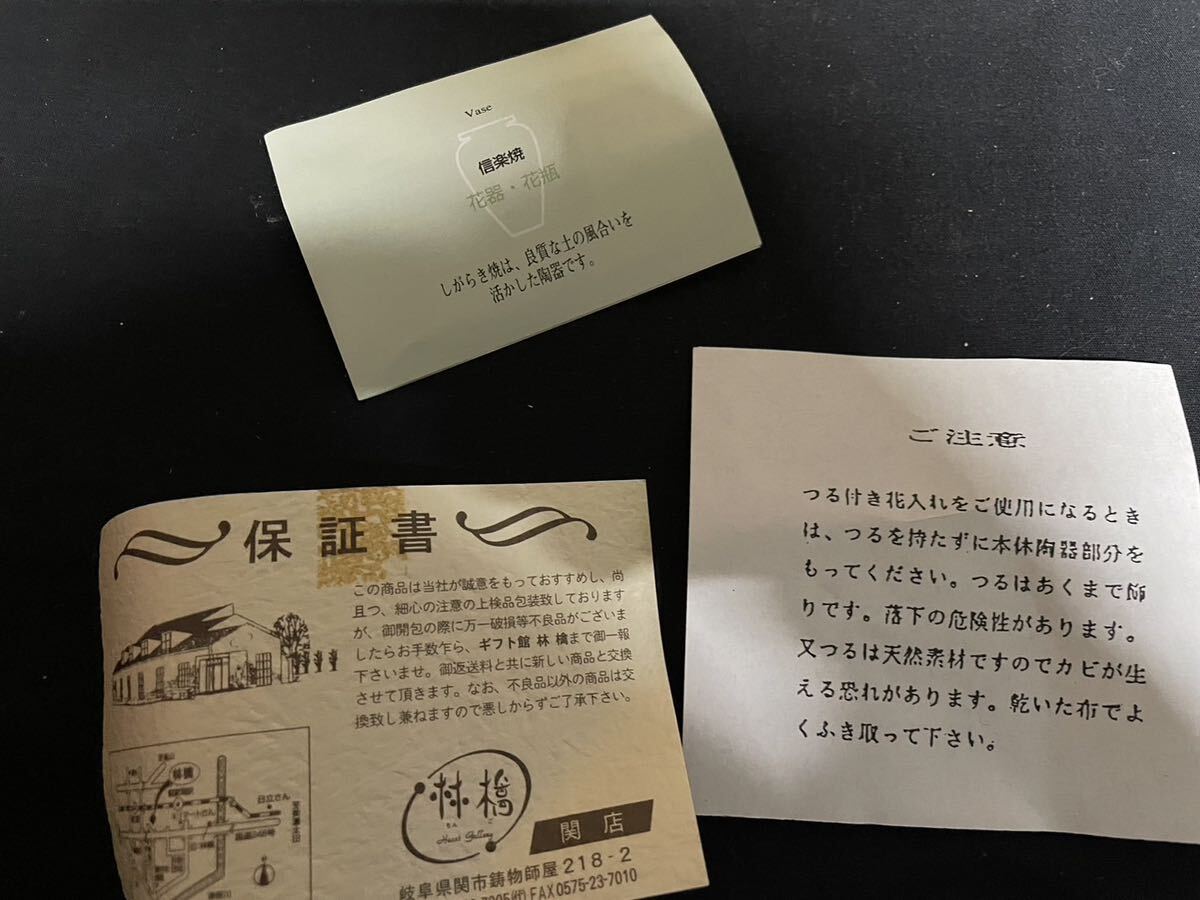 Vase
信楽焼
花器・花瓶
しがらき焼は、良質な土の風合いを
活かした陶器です。
ご注意
つる付き花入れをご使用になるとき
は、つるを持たずに本体陶器部分を
もってください。つるはあくまで飾
りです。落下の危険性があります。
又つるは天然素材ですのでカビが生
える恐れがあります。乾いた布でよ
くふき取って下さい。
保証書
この商品は当社が誠意をもっておすすめし、尚
且つ、細心の注意の上検品包装致しております
が、御開包の際に万一破損等不良品がございま
したらお手数乍ら、ギフト館 林檎まで御一報
下さいませ。御返送料と共に新しい商品と交換
させて頂きます。なお、不良品以外の商品は交
換致し兼ねますので悪しからずご了承下さい。
林檎
日立さん
国道248号
林檎
りんご
Heart Gallery
関店
岐阜県関市鋳物師屋218-2
7205㈹ FAX0575-23-7010